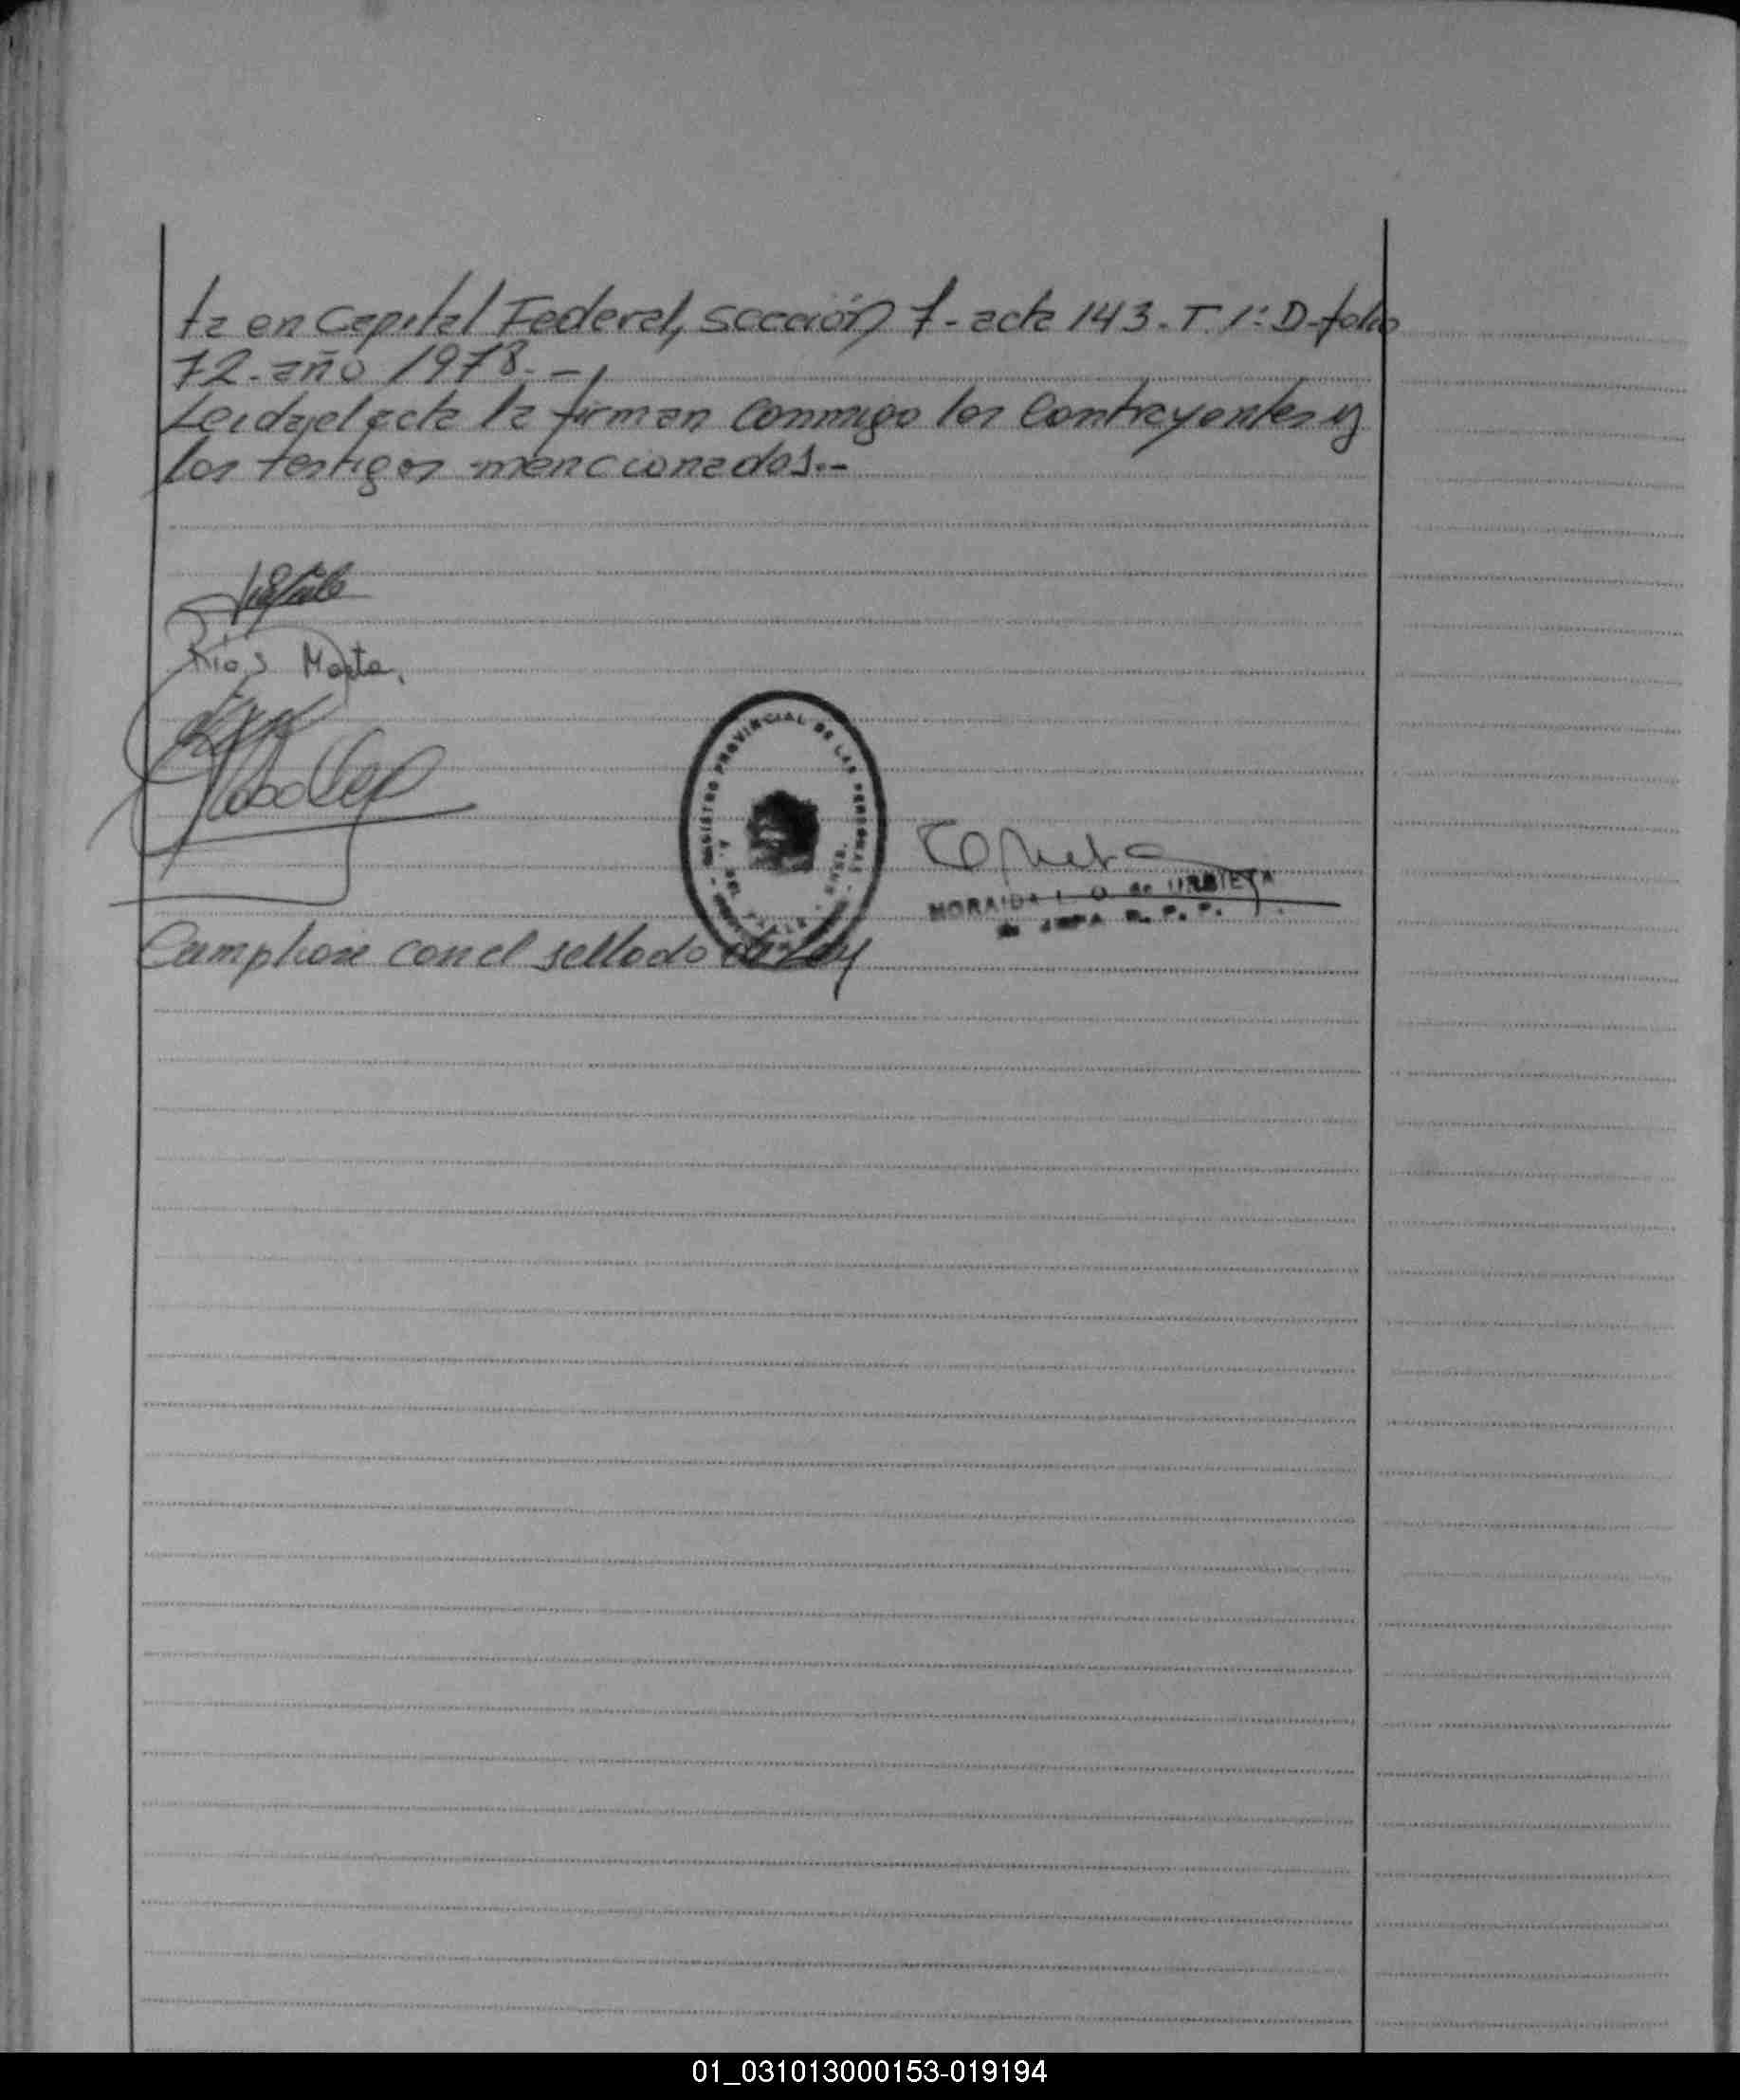 ta en Capital Federal, sección 7- acta 143. T. 1: D-folio
72- año 1978.-
Leida el acta la firman conmigo los contrayentes y
los testigos mencionados.-
Ríos Marta.
REGISTRO PROVINCIAL DE LAS PERSONAS
de URBIETA
JEFA R. P. P.
Cumplióse con el sellado de Ley
01_031013000153-019194